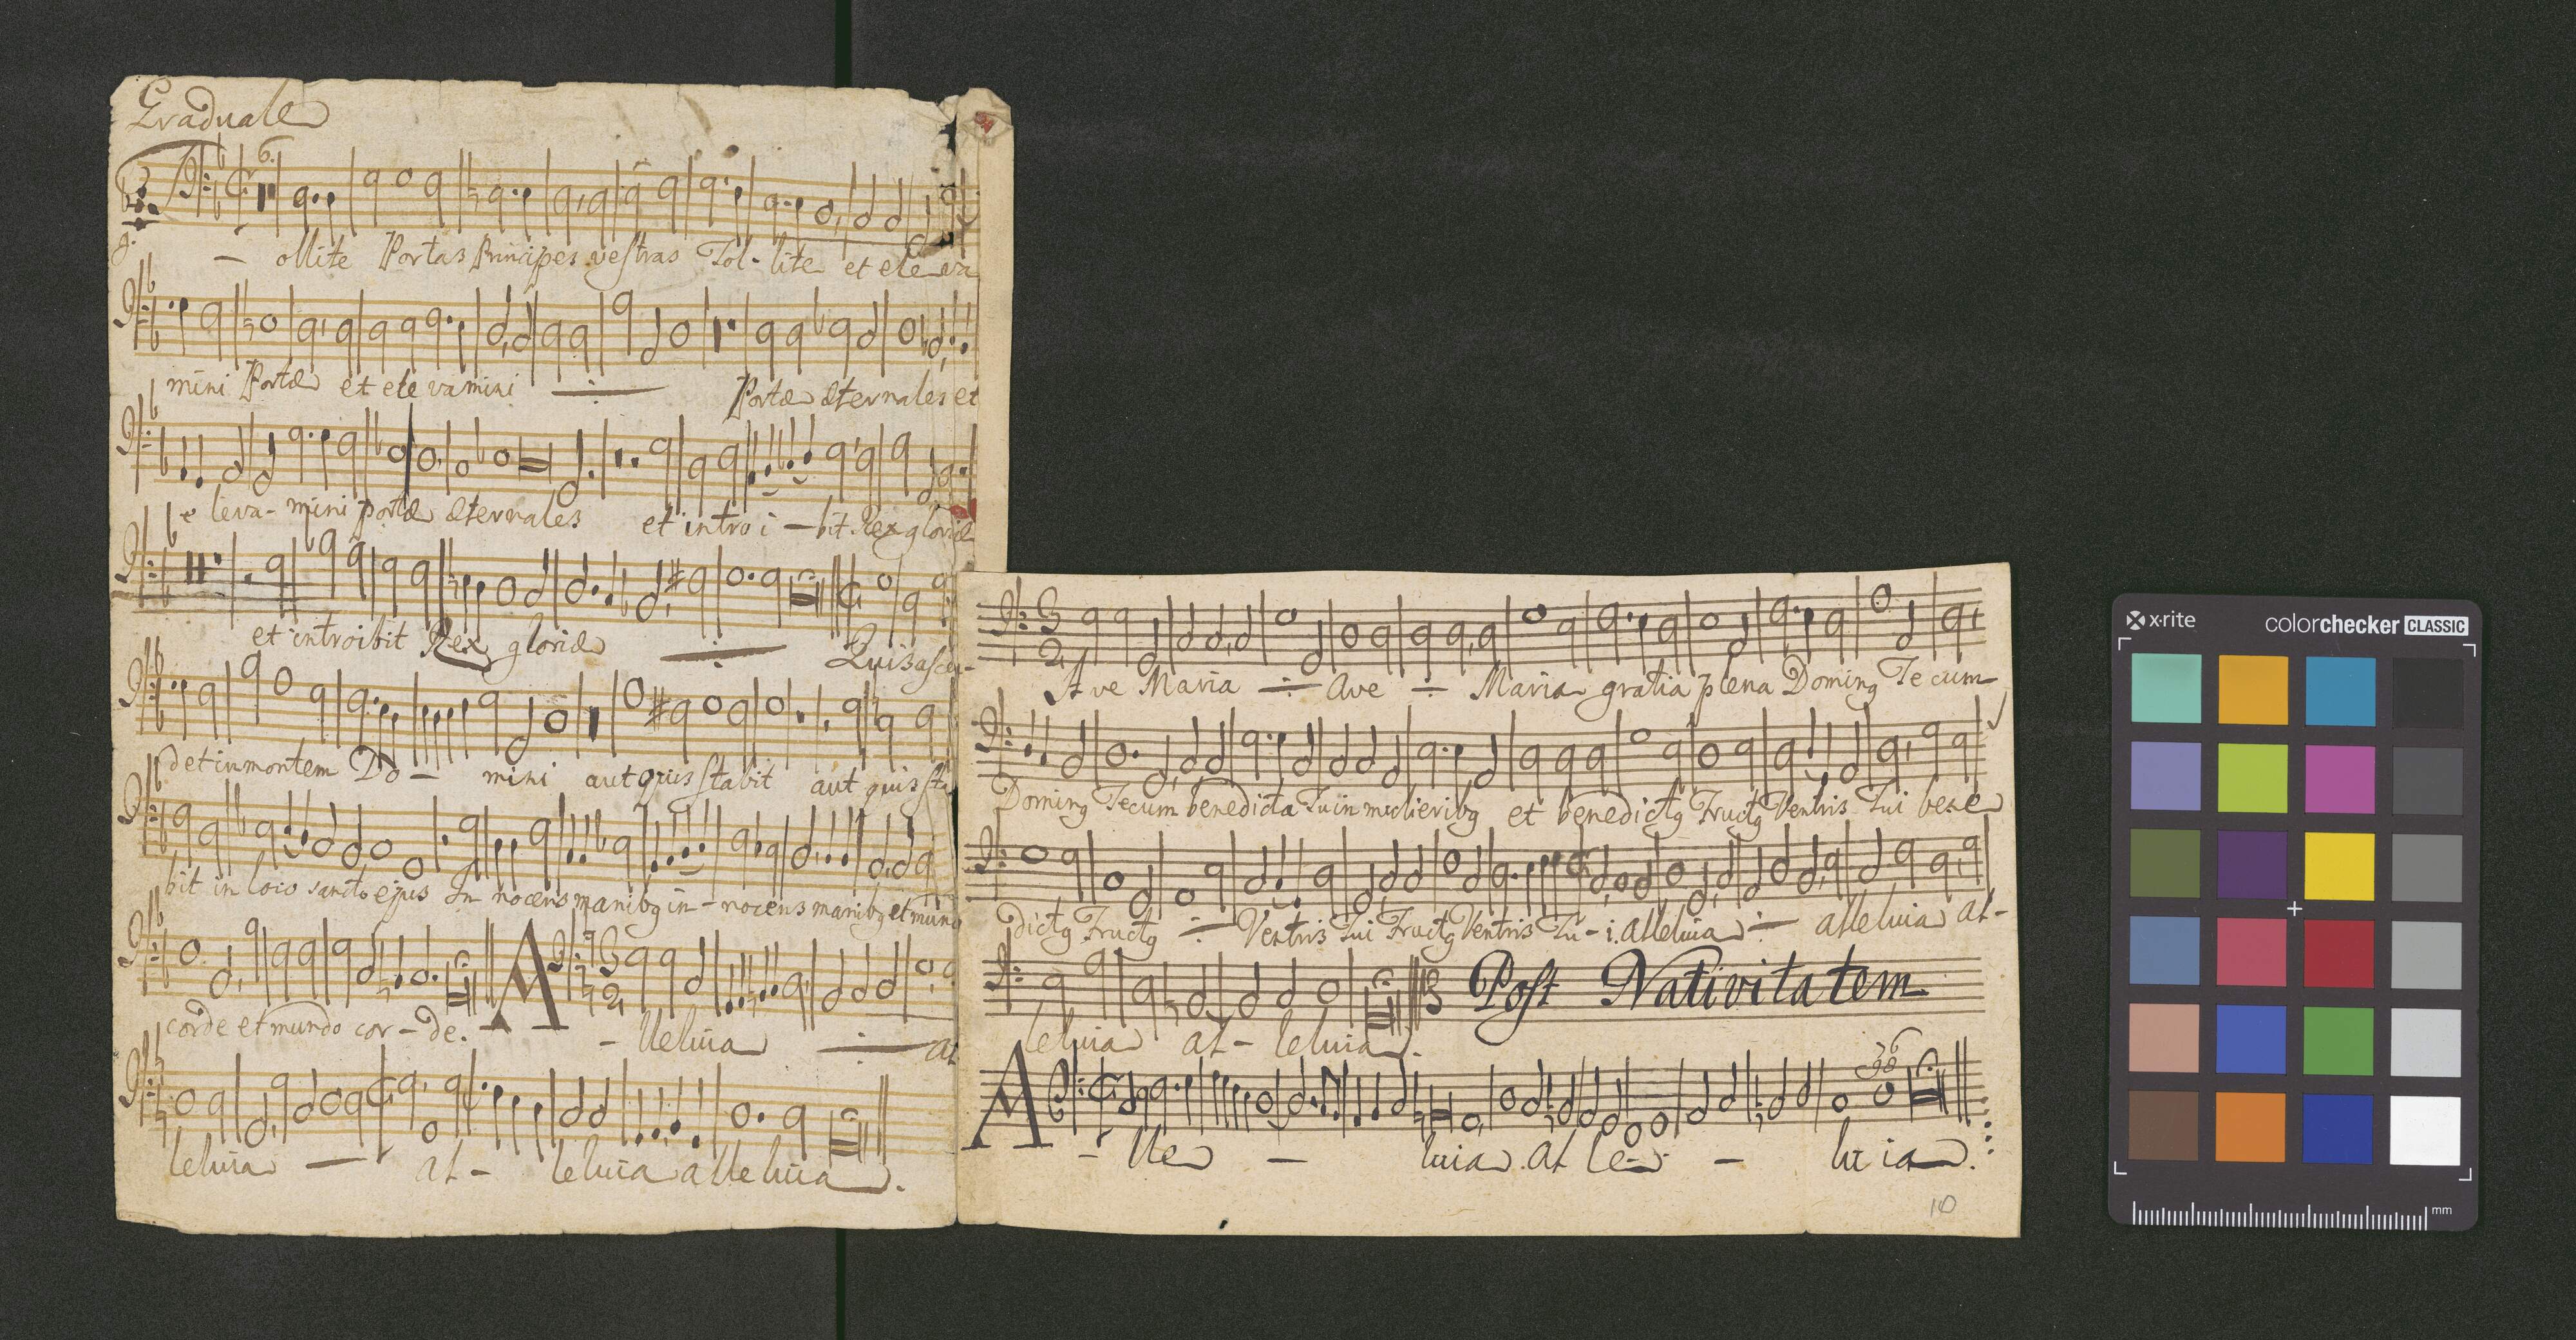 Graduale
6.
- ollite Portas Principes vestras Tol- lite et eleva
mini Portæ et elevamini ÷ Portæ æternales et
e leva- mini portæ æternales et intro i - bit Rex gloriæ
et introibit Rex gloriæ ÷ Quis ascen-
det in montem Do - mini aut quis stabit aut quis sta
bit in loco sancto ejus In nocens manibq in - nocens manibq et mund
corde et mundo cor - de. A - lleluia ÷ al
leluia — al - leluia alleluia.
3
2
A ve Maria ÷ Ave ÷ Maria gratia plena Dominq Te cum
Dominq Tecum benedicta Tu in mulieribq et benedictq Fructq Ventris Tui bene
dictq Fructq ÷ Ventris Tui Fructq Ventris Tu - i. alleluia ÷ alleluia al-
leluia al - leluia.
Post Nativitatem
A - lle - luia. al le - lu ia.
10
x·rite colorchecker CLASSIC
mm